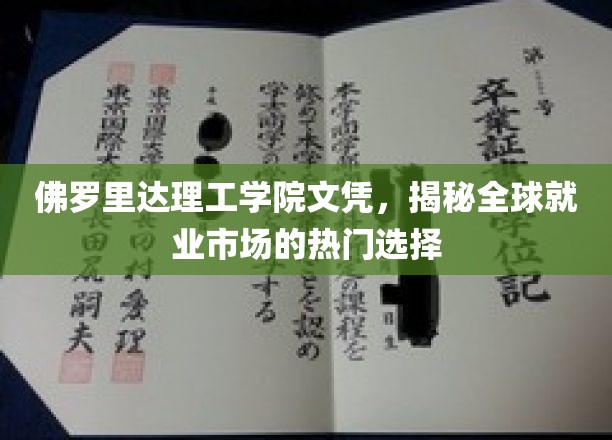 佛罗里达理工学院文凭，揭秘全球就
业市场的热门选择
第 号
卒業証 学位記
本学商学部 定の課程を
修めて本学 ことを認め
学士(商学)の する
東京国際大 田村愛理
東京国際大 長田尻嗣夫